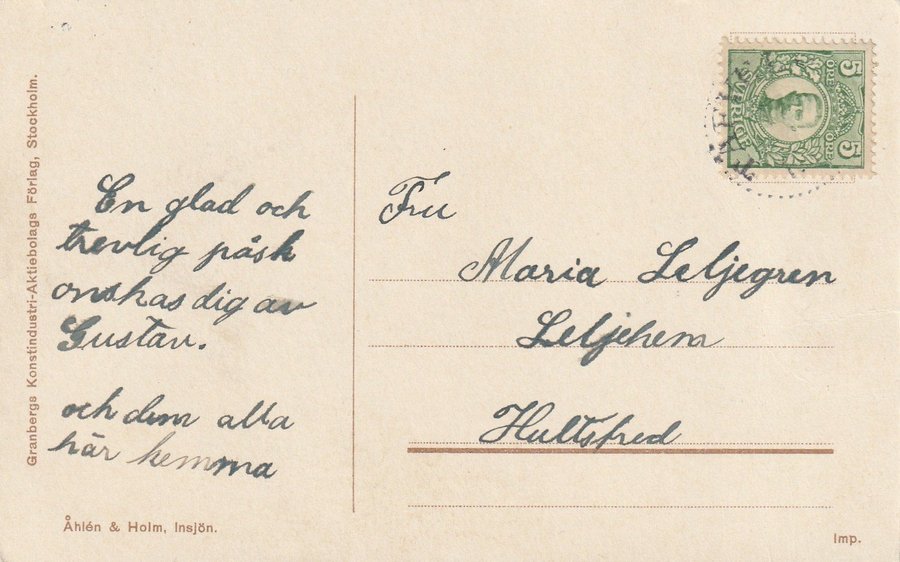 Granbergs Konstindustri-Aktiebolags Förlag, Stockholm.
En glad och
trevlig påsk
onskas dig av
Gustav.
och dem alla
här hemma
Åhlén & Holm, Insjön.
5 ÖRE
SVERIGE
ÖRE 5
Fru
Maria Leljegren
Leljehem
Hultsfred
Imp.